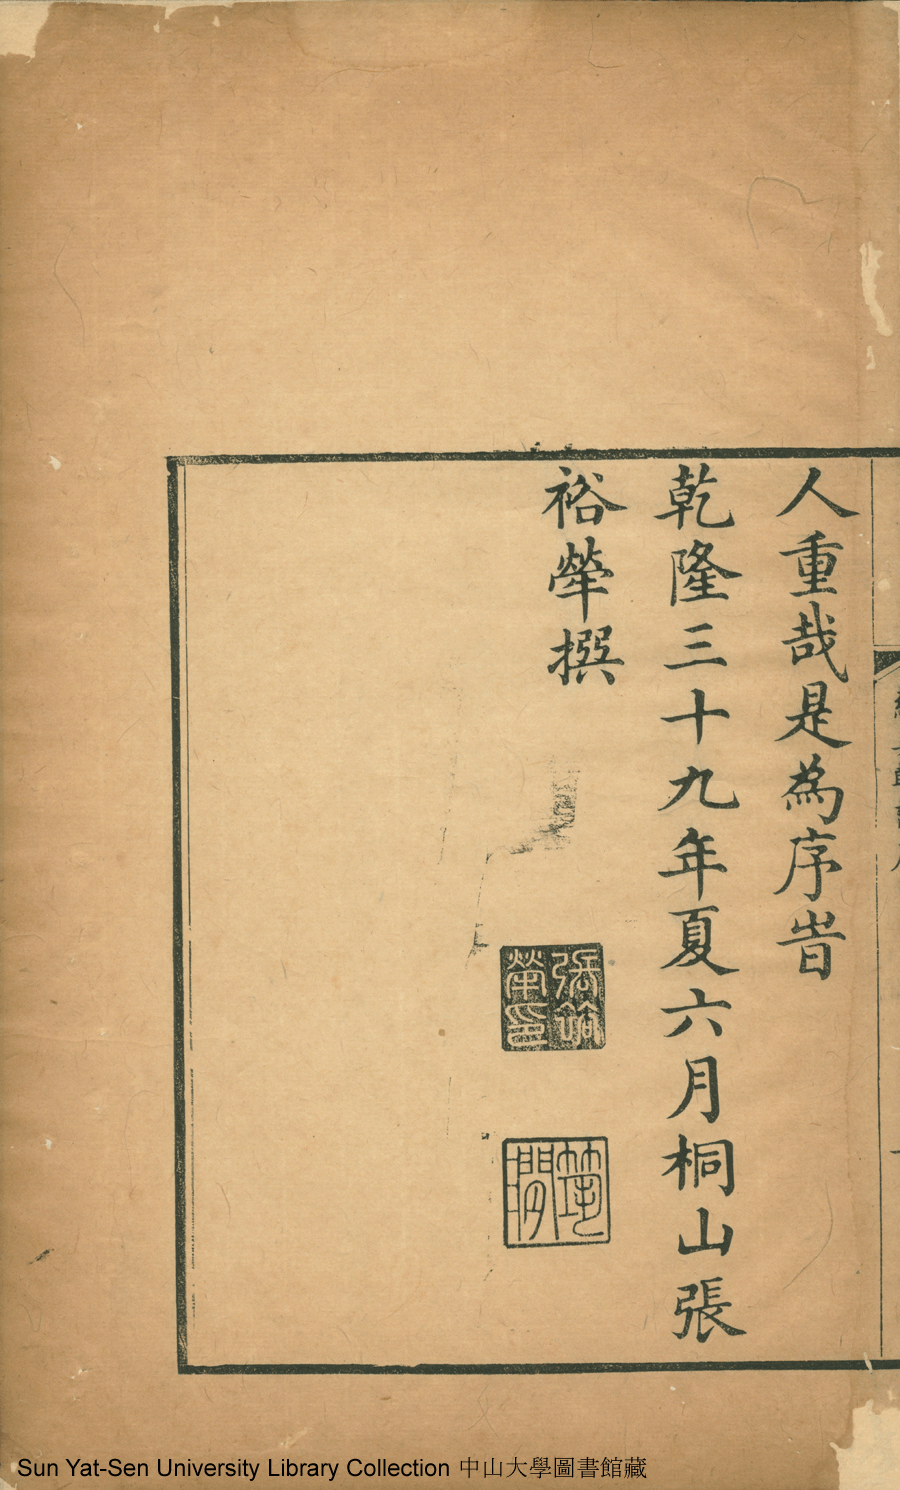 人重哉是為序旹
乾隆三十九年夏六月桐山張
裕犖撰
張裕
犖印
Sun Yat-Sen University Library Collection 中山大學圖書館藏